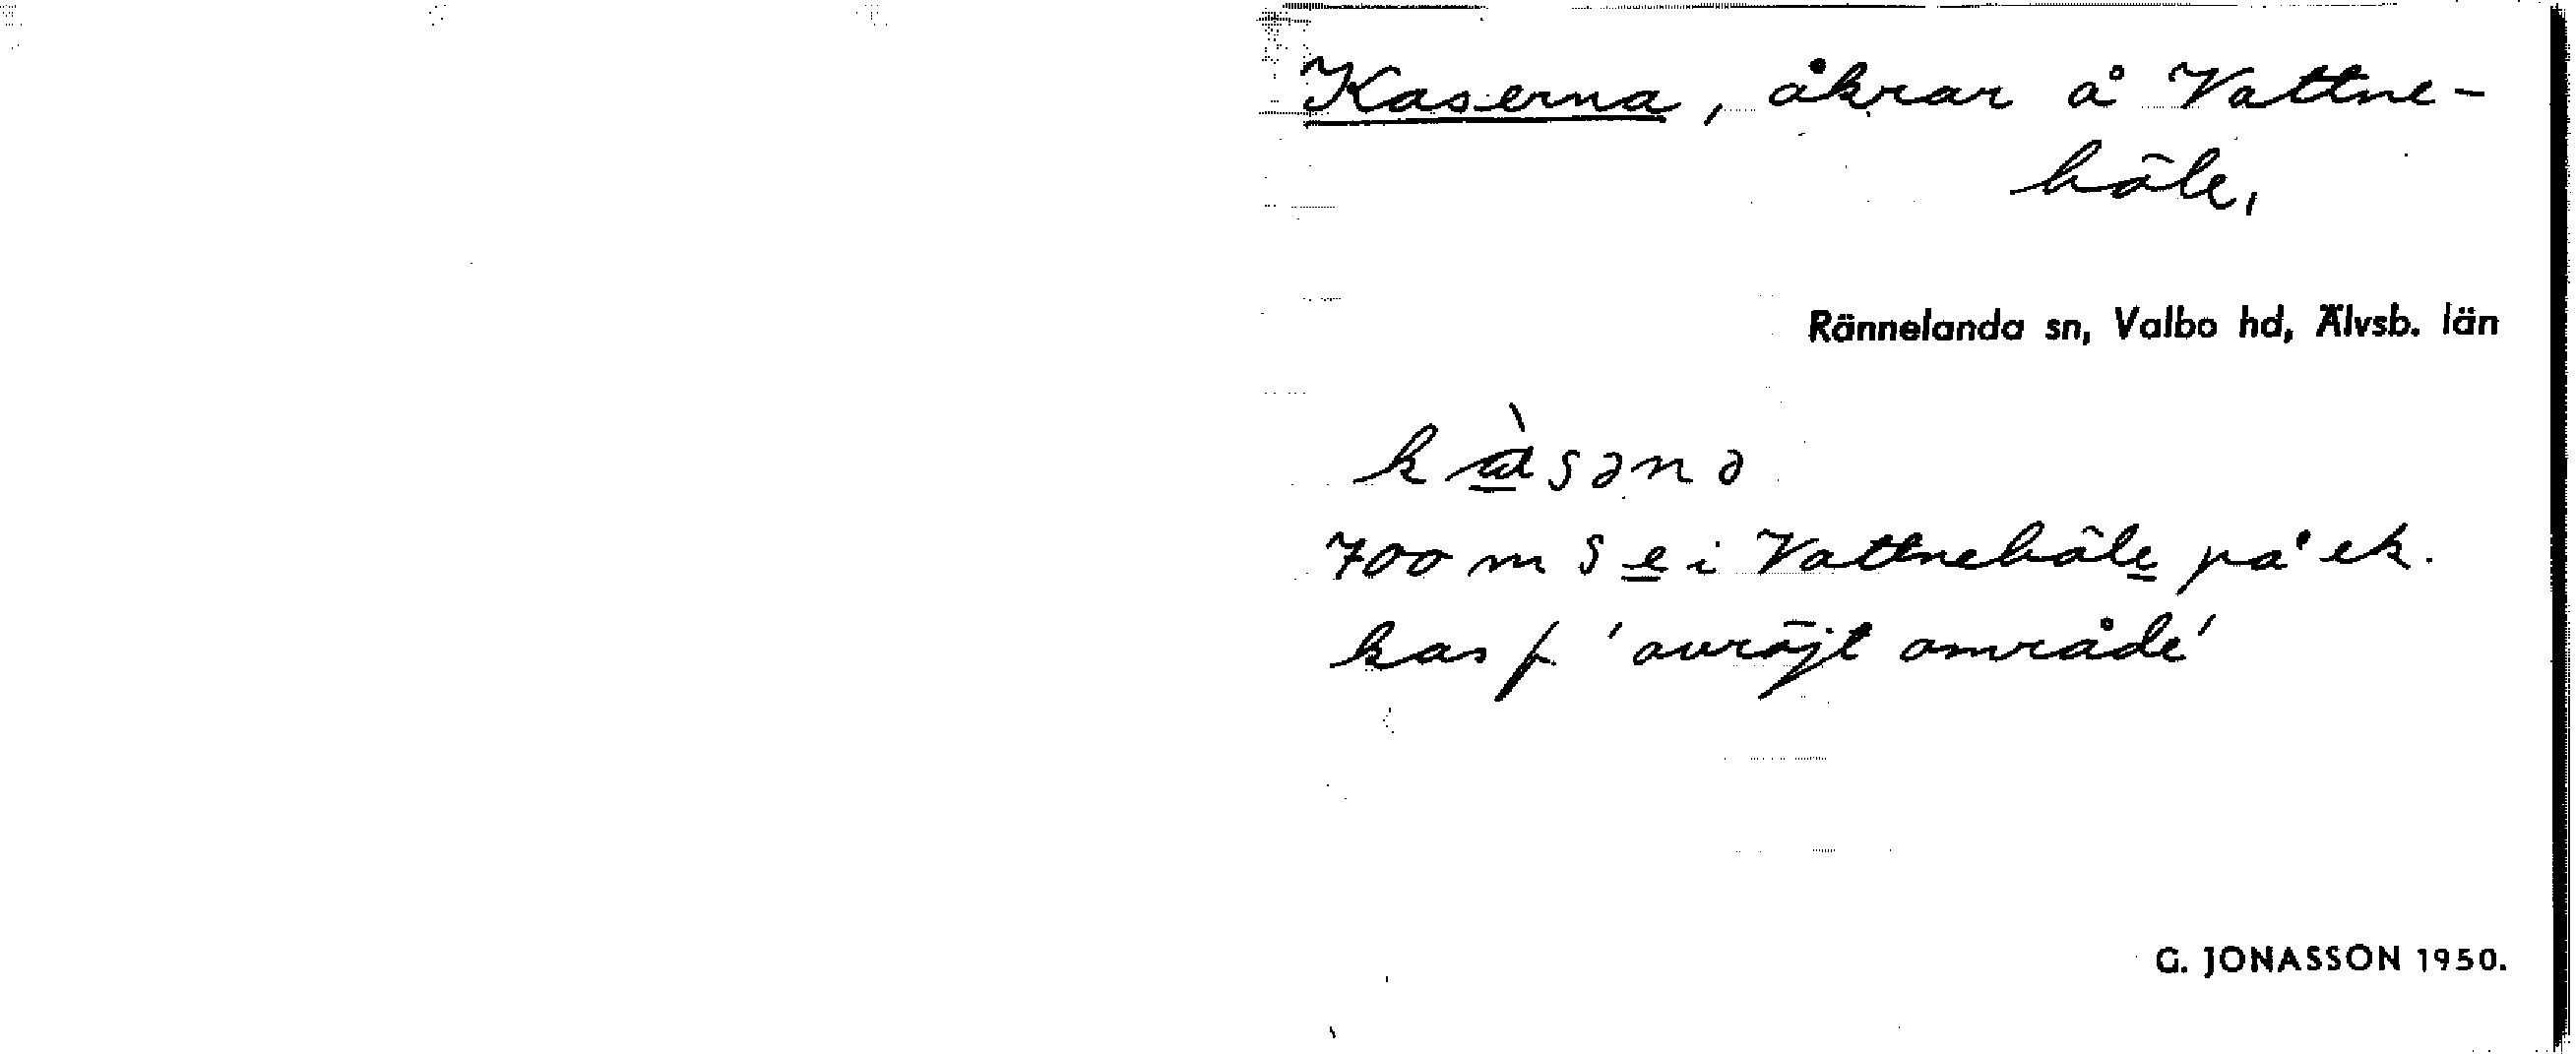 Kaserna, åkrar å Vattne-
häle,
Rännelanda sn, Valbo hd, Älvsb. län
kàsənə
700 m S e i Vattnehäle på ek.
kas f. 'avröjt område'
G. JONASSON 1950.